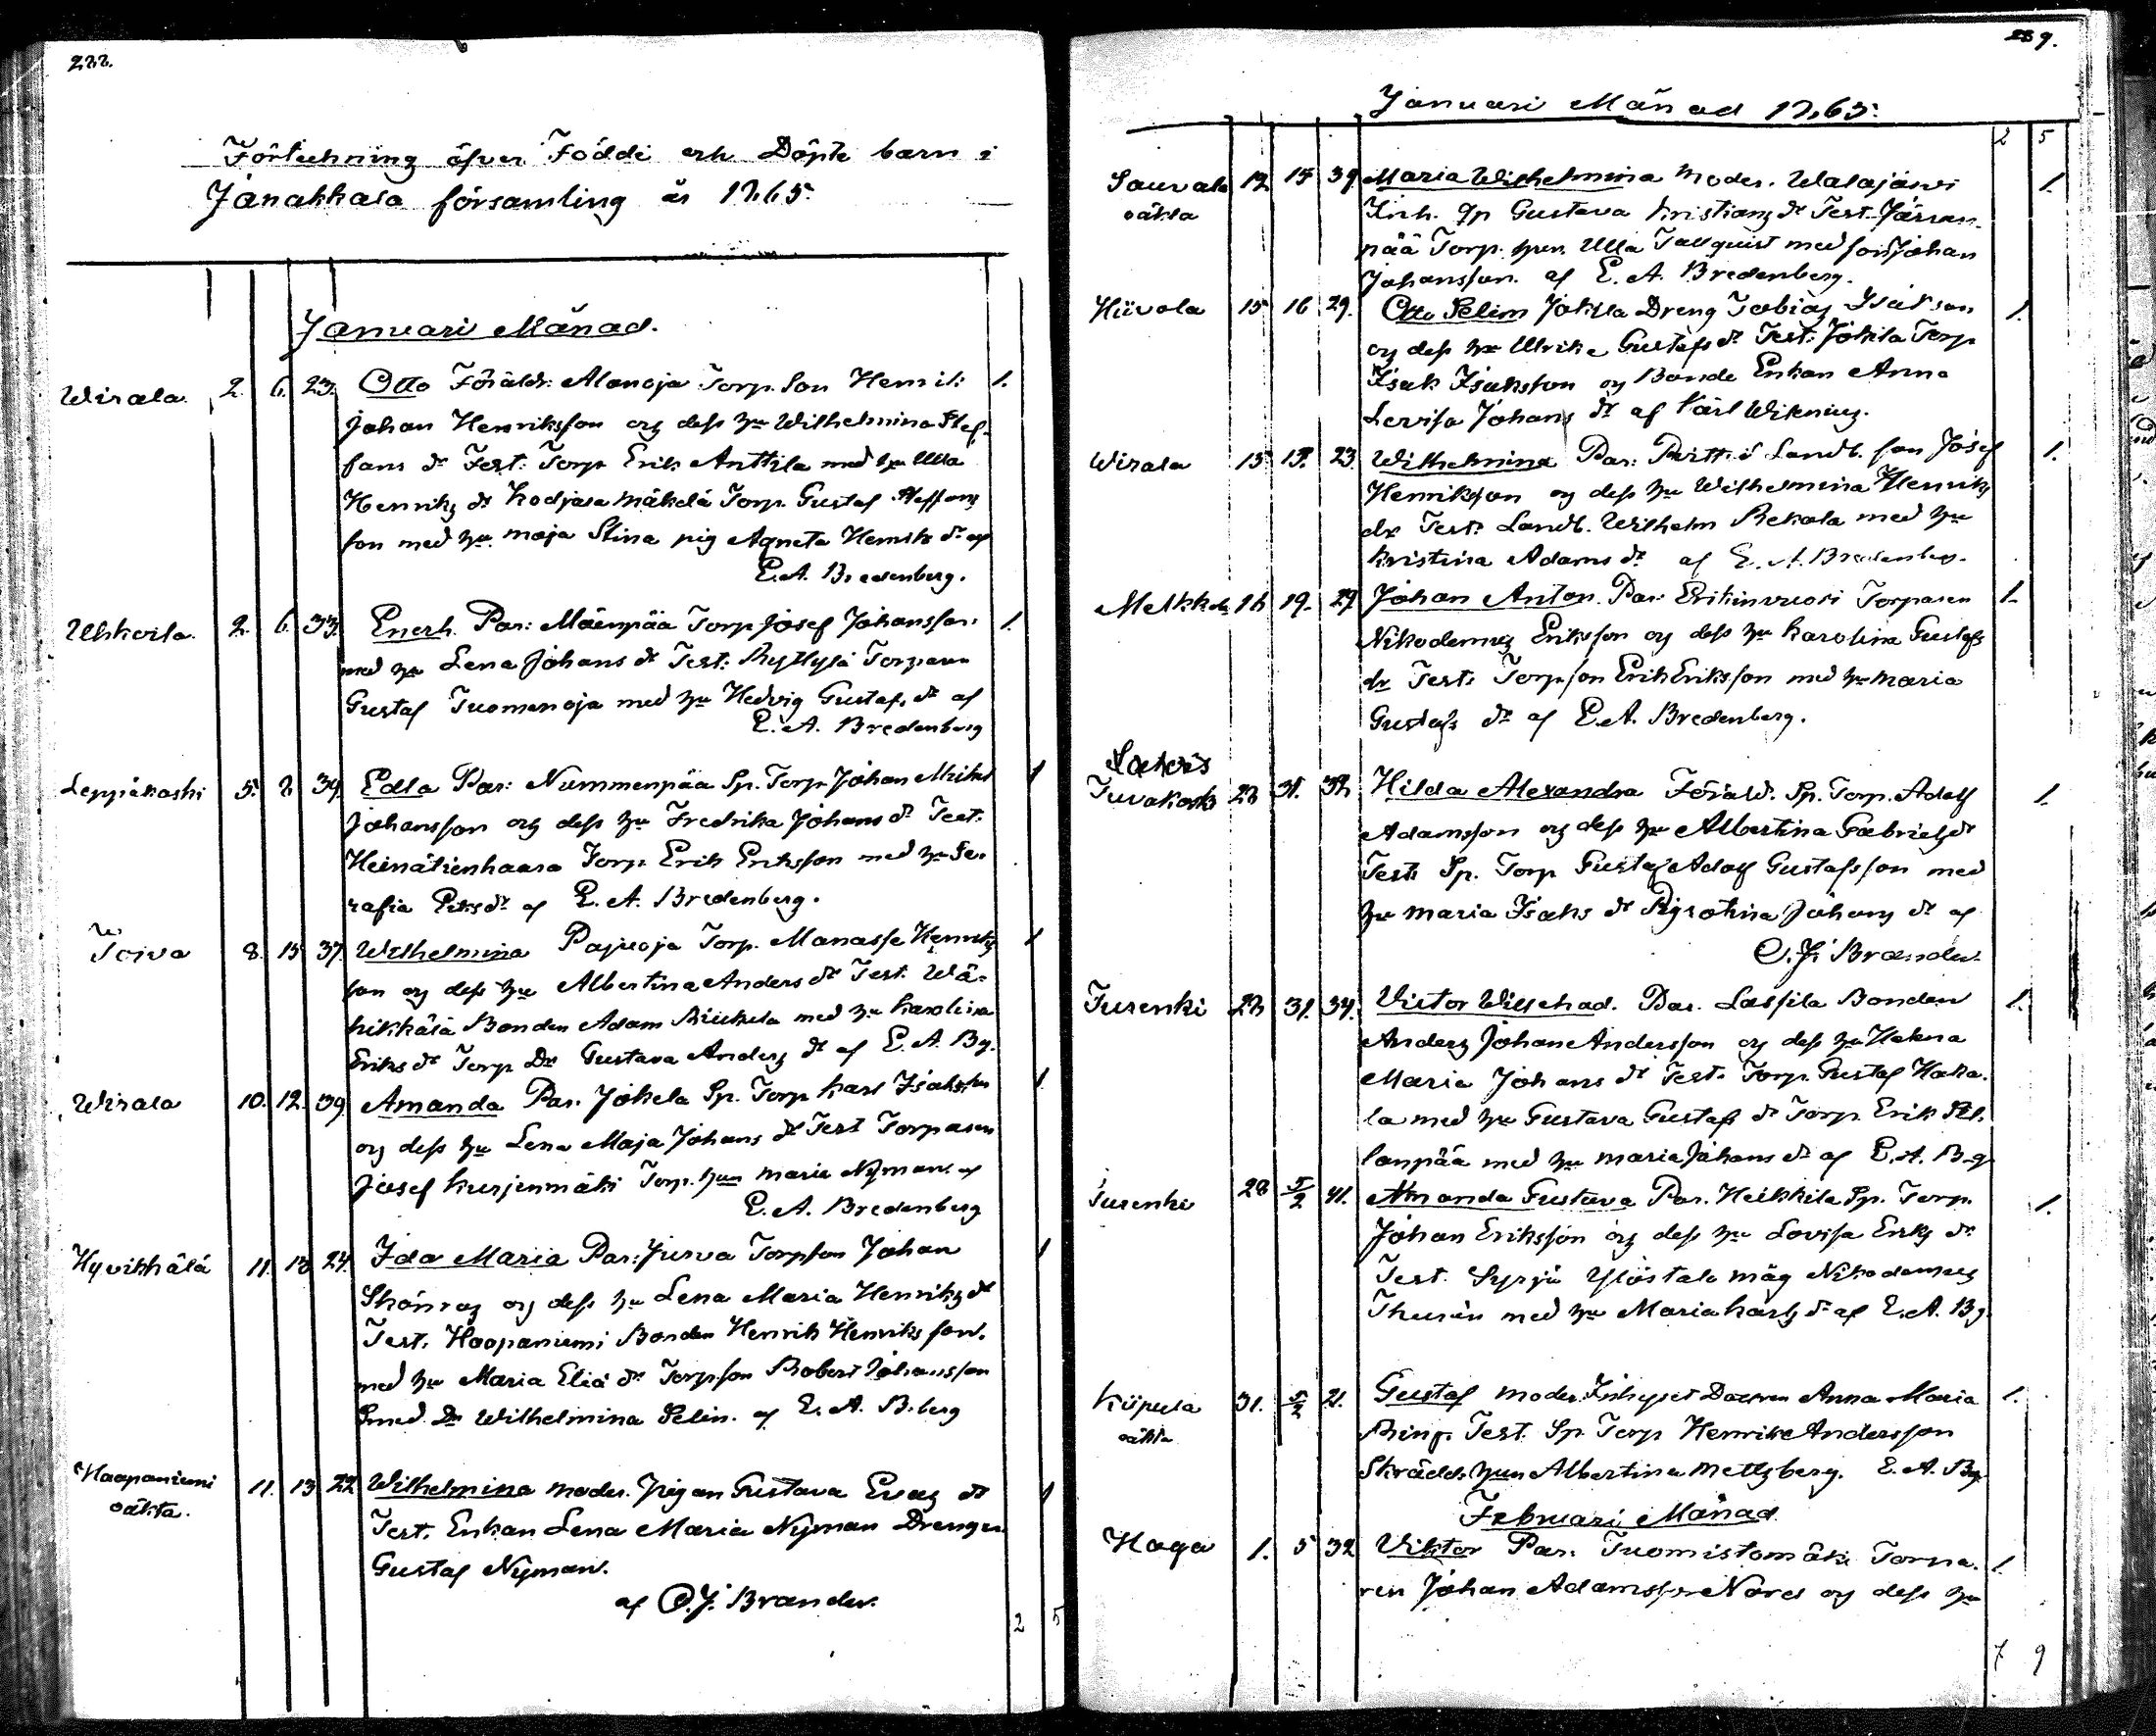 288.
Förteckning öfver Födde och Döpte barn i
Janakkala församling år 1865.
Januari Månad.
Wirala 2. 6. 23. Otto Föräldr: Alanoja Torp. Son Henrik 1.
Johan Henriksson och dess hu Wilhelmina Stef-
fans dr Test: Torp Erik Anttila med hu Ulla
Henriks dr Torp. Gustaf Steffans
son med hu Maja Stina pig Agneta Henriks dr af
E. A. Bredenberg.
Uhkoila 2. 6. 33. Enoch Par: Mäenpää Torp Josef Johansson 1.
med hu Lena Johans dr Test: Torparen
Gustaf Tuomenoja med hu Hedvig Gustafs dr af
E. A. Bredenberg
Leppäkoski 5. 8 39. Edla Par: Nummenpää Sp. Torp Johan 1
Johansson och dess hu Fredrika Johans dr Test.
Heinätienhaara Torp. Erik Eriksson med hu Se-
rafia Eriks dr af E. A. Bredenberg.
Toiva 8. 15 37. Wilhelmina Pajuoja Torp. Manasse Henriks 1
son och dess hu Albertina Anders dr Test. Wä-
hikkälä Bonden Adam med hu Karolina
Eriks dr Torp Dr Gustava Anders dr af E. A. Bg.
Wirala 10. 12. 39. Amanda Par. Jokela Sp. Torp Karl Isaksson 1
och dess hu Lena Maja Johans dr Test Torparen
Josef Kurjenmäki Torp. hun Maria Nyman af
E. A. Bredenberg
Hyvikkälä 11. 18 24. Ida Maria Par: Jurva Torpson Johan 1
och dess hu Lena Maria Henriks dr
Test. Haapaniemi Bonden Henrik Henriksson.
med hu Maria Eliä dr Torpson Robert Johansson
Smed. Dr Wilhelmina Selin. af E. A. B.berg
Haapaniemi 11. 13 22 Wilhelmina moder. Pigan Gustava Evas dr 1
oäkta.
Test. Enkan Lena Maria Nyman Drengen
Gustaf Nyman.
af C. J. Brander.
2 5
289.
Januari Månad 1865.
2 5
Sauvala 12 15 39. Maria Wilhelmina Moder. Walajärvi 1.
oäkta
Inh. Gustava Kristians dr Test. Järven-
pää Torp. hun. Ulla Tallquist med son Johan
Johansson. af E. A. Bredenberg.
Hiivola 15 16 29. Otto Selim Jokela Dreng Tobias Isakson 1.
och dess hu Ulrika Gustafs dr Test: Jokela Torp
Isak Isaksson och Bonde Enkan Anna
Lovisa Johans dr af Karl Wikenius.
Wirala 15 19. 23. Wilhelmina Par: Landb. son Josef 1.
Henriksson och dess hu Wilhelmina Henriks
dr Test: Landb. Wilhelm Rekola med hu
Kristina Adams dr af E. A. Bredenberg.
Melkkola 18 19. 29. Johan Anton. Par: Erikinvuori Torparen 1.
Nikodemus Eriksson och dess hu Karolina Gustafs
dr Test: Torpson Erik Eriksson med hu Maria
Gustafs dr af E. A. Bredenberg.
Turakoski 28 31. 32 Hilda Alexandra Föräld. Sp. Torp. Adolf 1.
Adamsson och dess hu Albertina Gabriels dr
Test: Sp. Torp Gustaf Adolf Gustafsson med
hu Maria Isaks dr Johans dr af
C. J. Brander.
Turenki 28 31. 34. Victor Willehad. Par. Lassila Bonden 1.
Anders Johan Andersson och dess hu Helena
Maria Johans dr Test: Torp. Gustaf Haka-
la med hu Gustava Gustafs dr Torp. Erik
lonpää med hu Maria Johans dr af E. A. B-g
Turenki 28 5/2 41. Amanda Gustava Par. Heikkilä Sp. Torp. 1.
Johan Eriksson och dess hu Lovisa Eriks dr
Test. Syrjä Ylöstalo måg Nikodemus
Thurén med hu Maria Karls dr af E. A. Bg.
Kiipula 31. 5/2 21. Gustaf moder. Inhyses Dottren Anna Maria 1.
oäkta
Ring. Test. Sp. Torp Henrik Andersson
Skrädd. hun Albertina Mettsberg. E. A. Bg.
Februari Månad
Haga 1. 5 32 Viktor Par: Tuomistomäki Torpa- 1.
ren Johan Adamsson Nord och dess hu
7 9